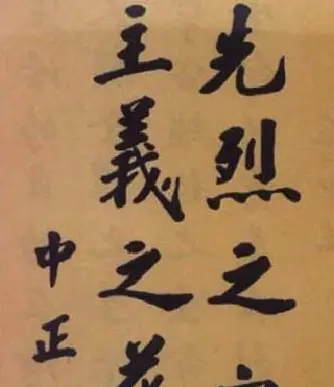 先烈之
主義之花
中正